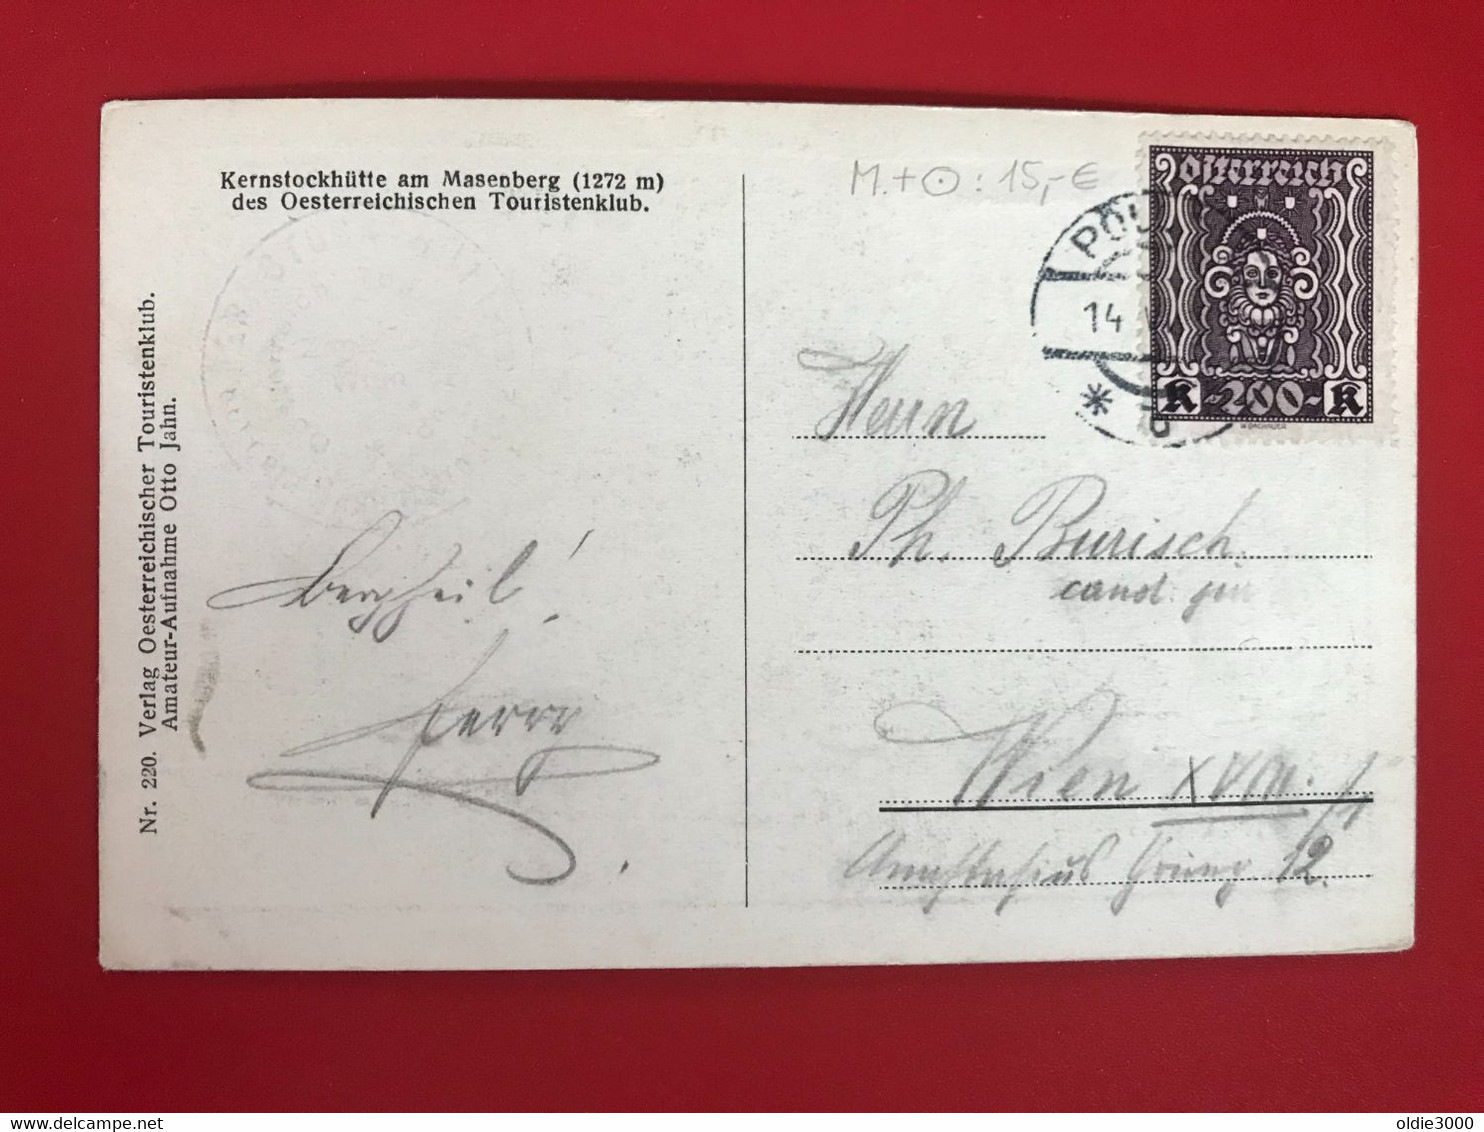 Kernstockhütte am Masenberg (1272 m)
des Oesterreichischen Touristenklub.
Nr. 220. Verlag Oesterreichischer Touristenklub.
Amateur-Aufnahme Otto Jahn.
Bergheil!
M.+⊙: 15,-€
PÖL
14
b
Österreich
K -200- K
W.DACHAUER
Herrn
Ph. Burisch.
cand.
Wien XVIII.
Anastasius Grüng. 12.
www.delcampe.net
oldie3000